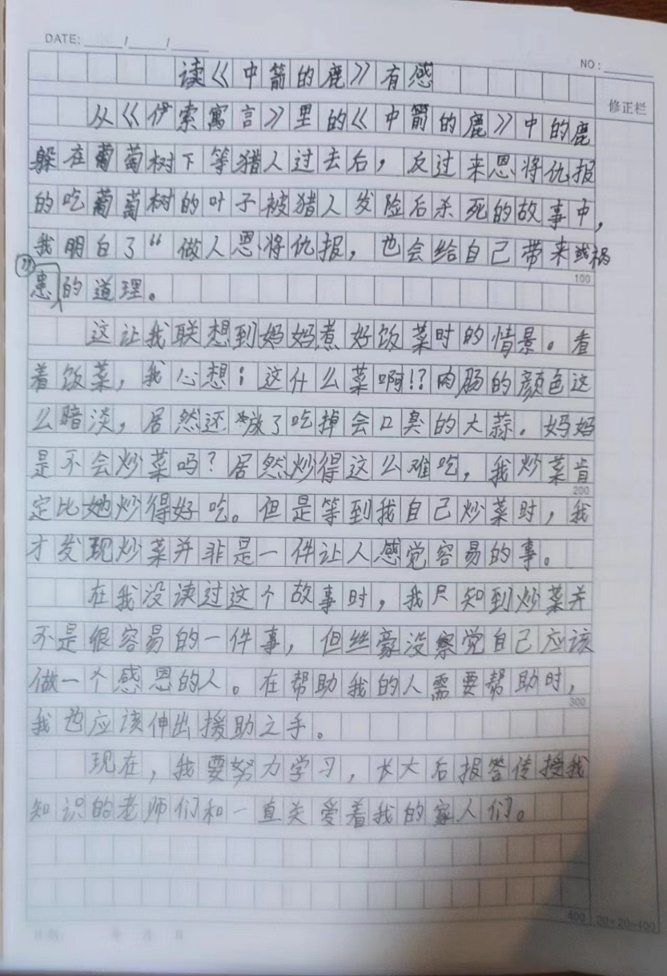 DATE: ____/____/____
NO: ______
修正栏
读《中箭的鹿》有感
从《伊索寓言》里的《中箭的鹿》中的鹿
躲在葡萄树下等猎人过去后，反过来恩将仇报
的吃葡萄树的叶子被猎人发险后杀死的故事中，
我明白了“做人恩将仇报，也会给自己带来或祸
患”的道理。
100
这让我联想到妈妈煮好饭菜时的情景。看
着饭菜，我心想：这什么菜啊！？肉肠的颜色这
么暗淡，居然还放了吃掉会口臭的大蒜。妈妈
是不会炒菜吗？居然炒得这么难吃，我炒菜肯
200
定比她炒得好吃。但是等到我自己炒菜时，我
才发现炒菜并非是一件让人感觉容易的事。
在我没读过这个故事时，我只知到炒菜并
不是很容易的一件事，但丝豪没察觉自己应该
做一个感恩的人。在帮助我的人需要帮助时，
300
我也应该伸出援助之手。
现在，我要努力学习，长大后报答传授我
知识的老师们和一直关爱着我的家人们。
400
20×20=400